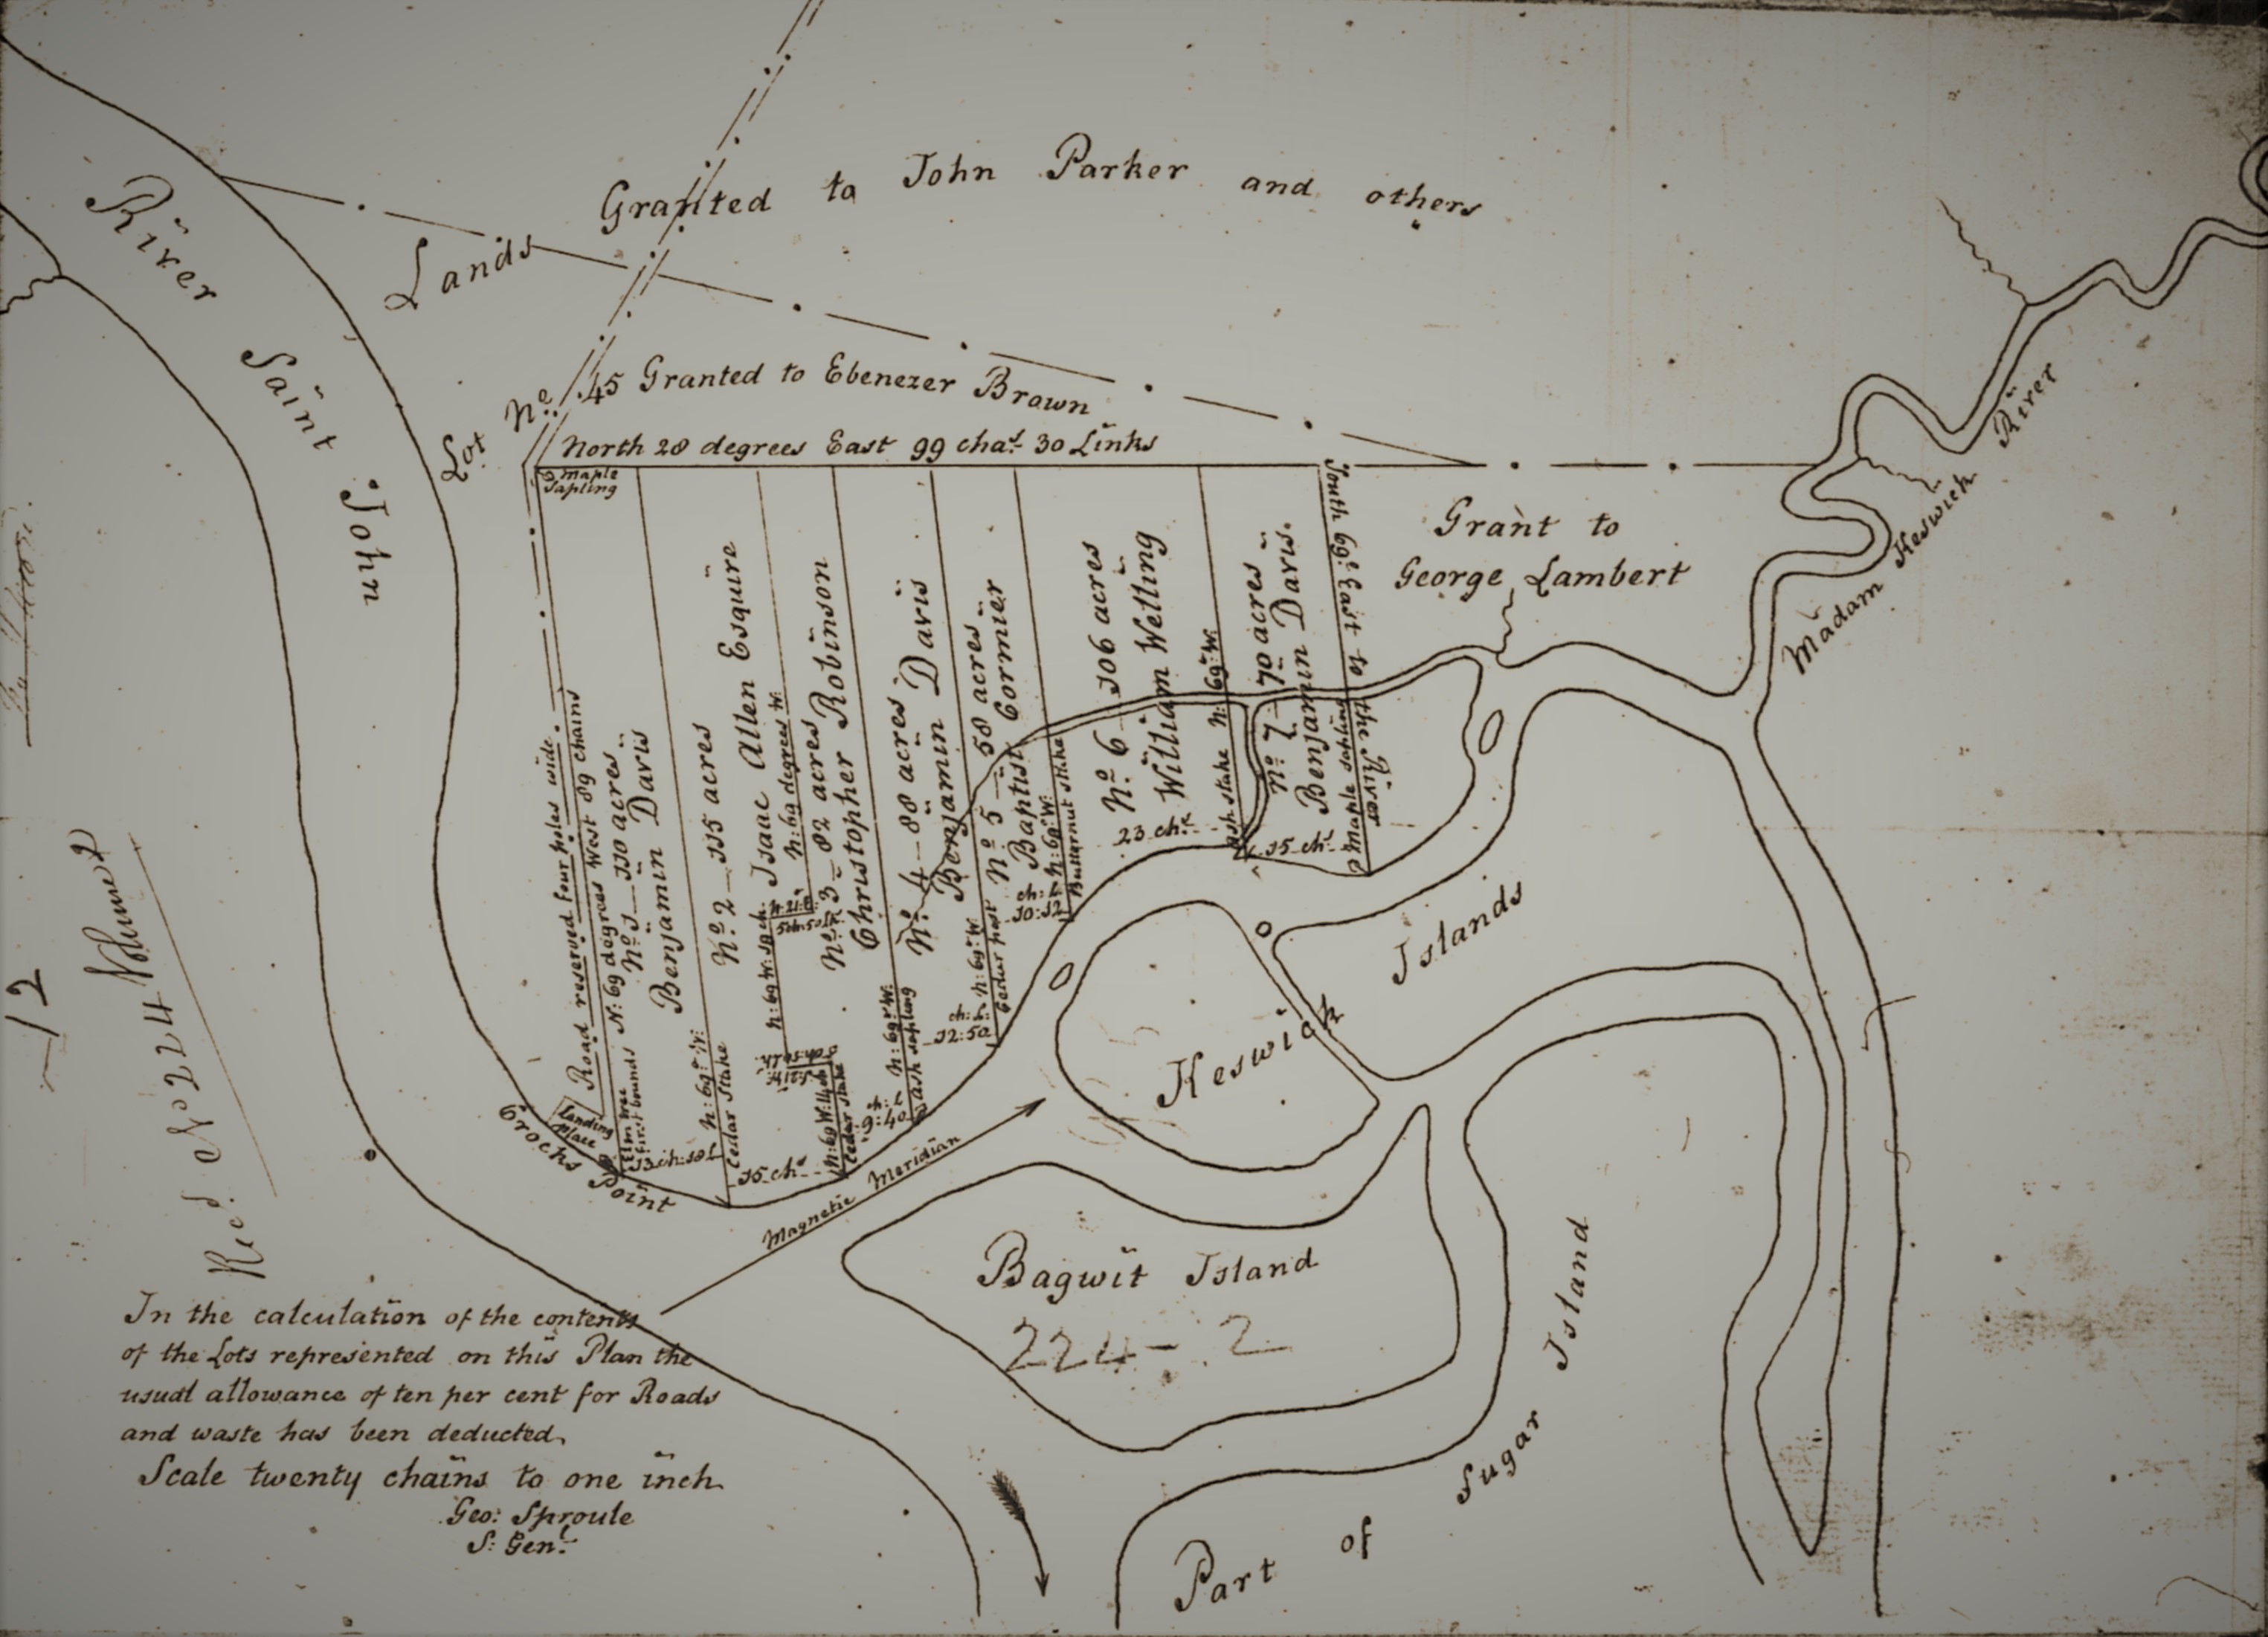 River Saint John
Lands Granted to John Parker and others
Lot No. 45 Granted to Ebenezer Brown
North 28 degrees East 99 chas. 30 Links
Maple
Sapling
Grant to
George Lambert
Madam Keswick River
South 69° East to the River
Road reserved four poles wide
N: 69 degrees West 89 chains
No. 1 — 110 acres
Benjamin Davis
No. 2 — 115 acres
Isaac Allen Esquire
N: 69 degrees W.
No. 3 — 82 acres
Christopher Robinson
No. 4 — 88 acres
Benjamin Davis
No. 5 — 58 acres
Baptist Cormier
No. 6 — 106 acres
William Welling
No. 7 — 70 acres
Benjamin Davis.
N: 69° W.
Ash stake
Maple sapling
23 chs.
15 chs.
N: 69° W.
Butternut stake
ch: L
10:12
N: 69° W.
Cedar post
ch: L:
12:50
N: 69° W.
Ash sapling
ch: L
9:40
Cedar stake
15 chs.
N: 69° W.
Cedar Stake
13 ch: 10 L
Elm tree
first bounds
Landing
Place
Crocks Point
Magnetic Meridian
Keswick Islands
Bagwit Island
224 - 2
Part of Sugar Island
In the calculation of the contents
of the Lots represented on this Plan the
usual allowance of ten per cent for Roads
and waste has been deducted.
Scale twenty chains to one inch.
Geo: Sproule
S: Genl.
12
No 224